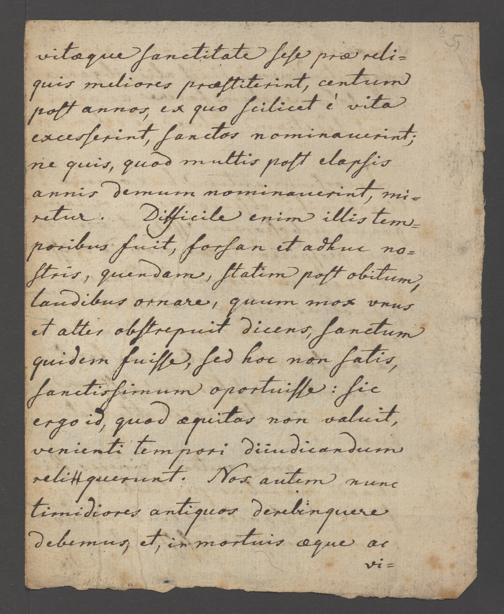 5
vitæque sanctitate sese præ reli=
quis meliores præstiterint, centum
post annos, ex quo scilicet e vita
excesserint, sanctos nominaverint;
ne quis, quod multis post elapsis
annis demum nominaverint, mi=
retur. Difficile enim illis tem=
poribus fuit, forsan et adhuc no=
stris, quendam, statim post obitum,
laudibus ornare, quum mox unus
et alter obstrepuit dicens, sanctum
quidem fuisse, sed hoc non satis,
sanctissimum oportuisse: sic
ergo id, quod æquitas non valuit,
venienti tempori diiudicandum
reliquerunt. Nos autem nunc
timidiores antiquos derelinquere
debemus, et, in mortuis æque ac
vi=